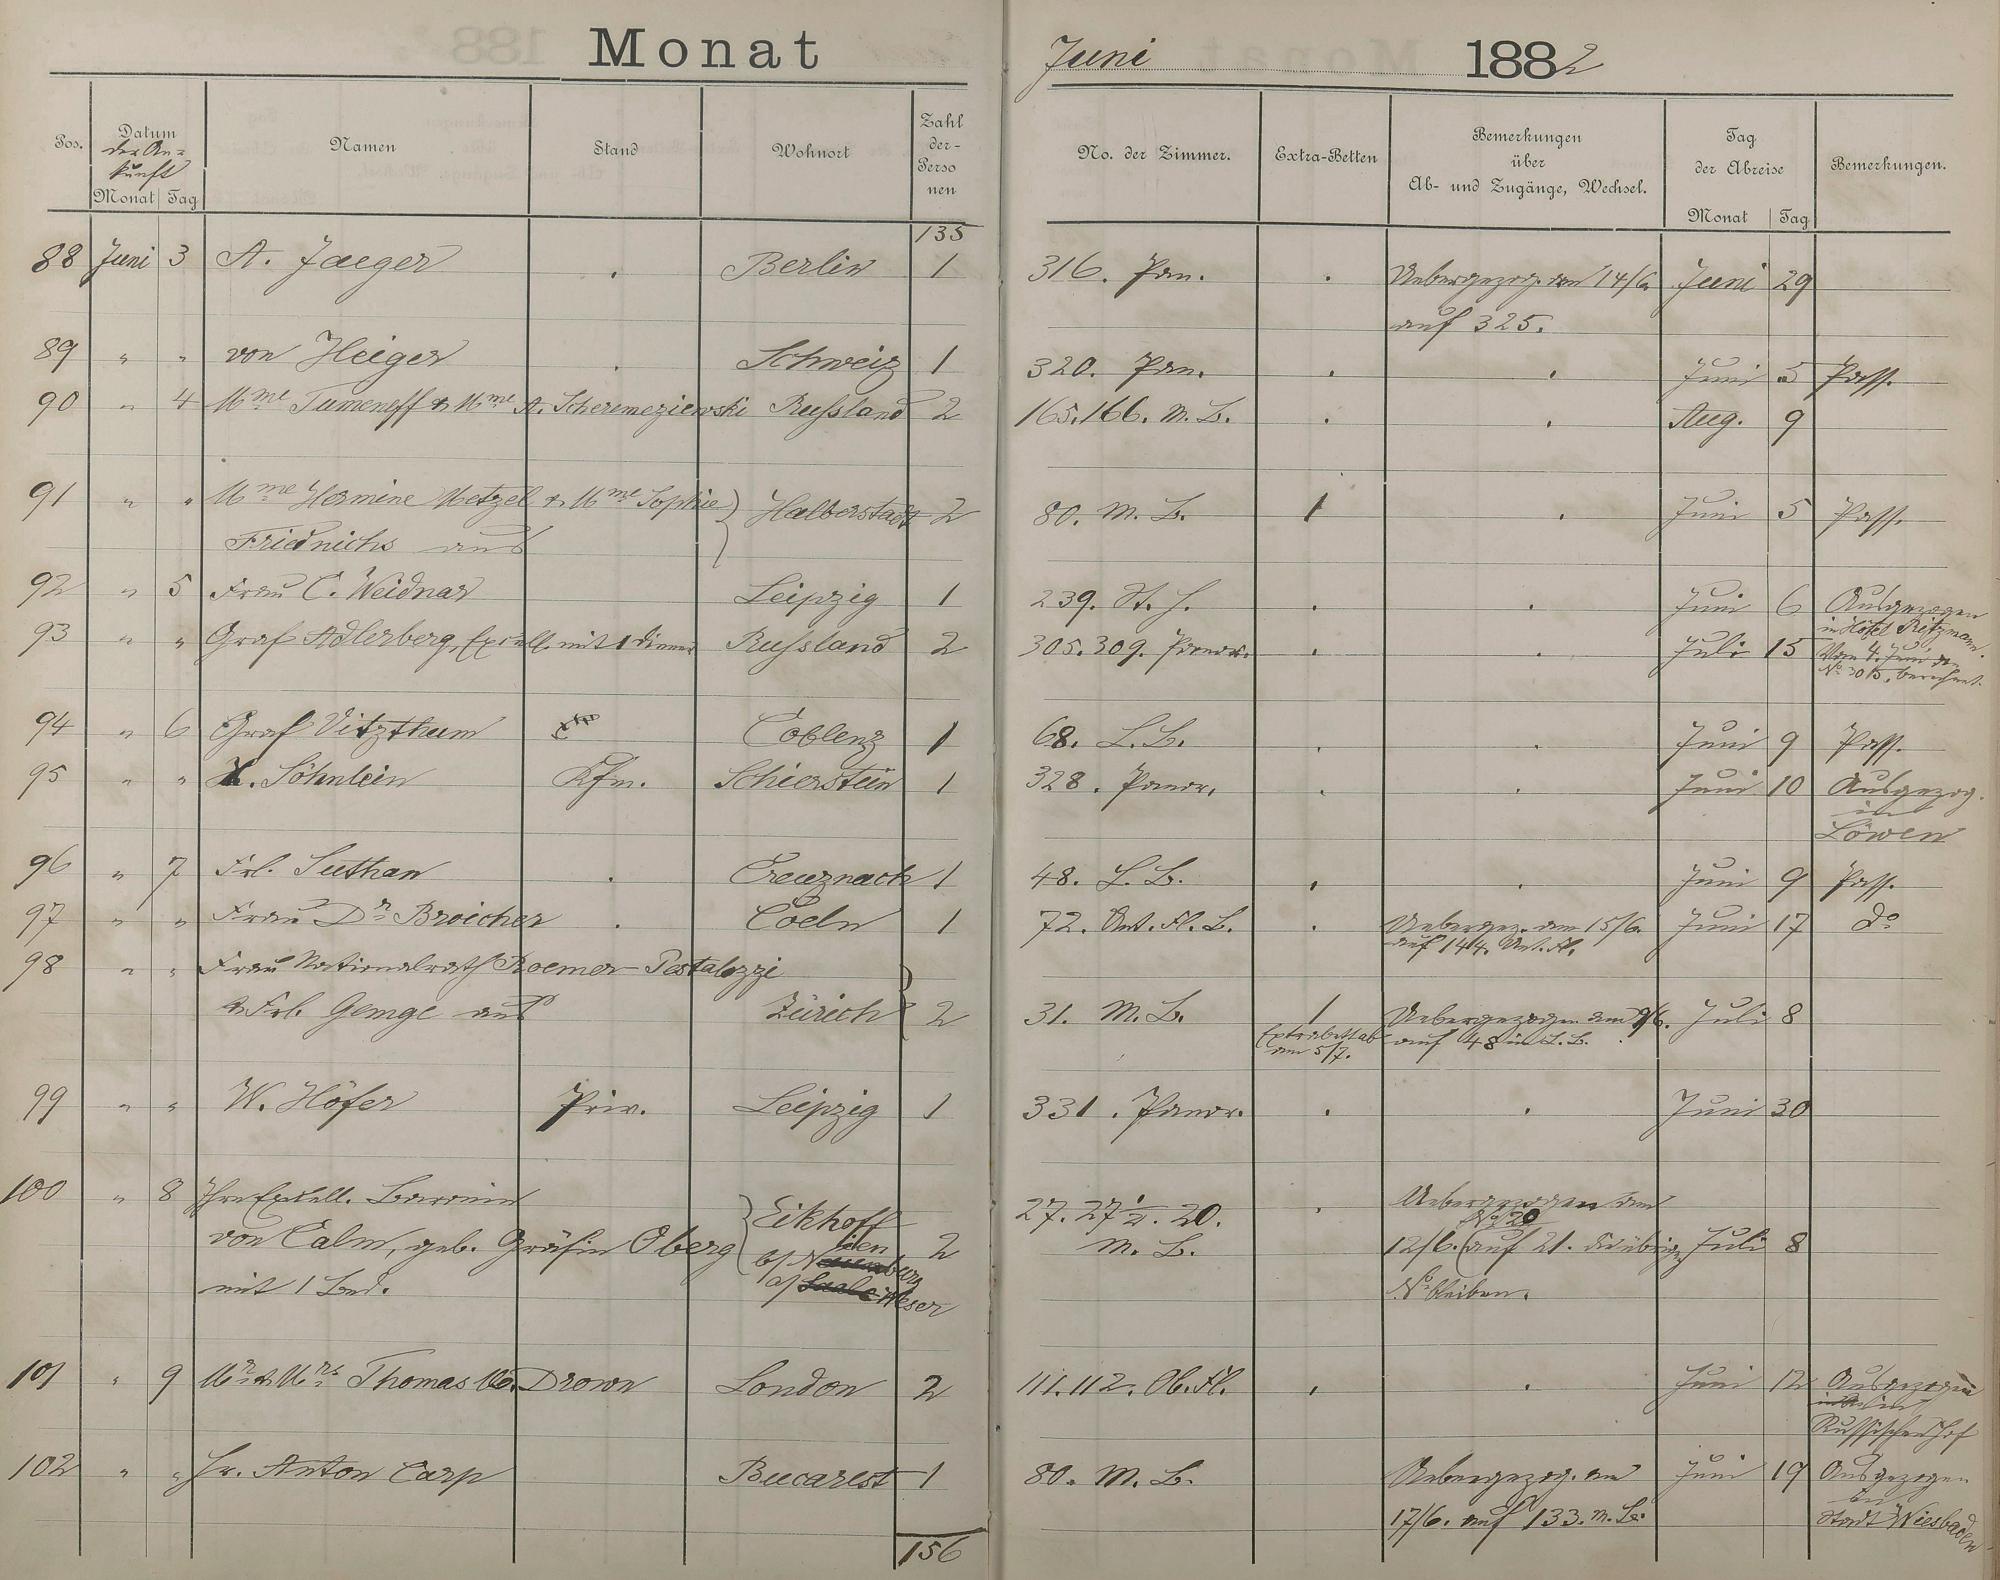 Monat Juni 1882
Pos. Datum der Ankunft Namen Stand Wohnort Zahl der Personen No. der Zimmer. Extra-Betten Bemerkungen über Ab- und Zugänge, Wechsel. Tag der Abreise Bemerkungen.
Monat Tag Monat Tag
135
88 Juni 3 A. Jaeger . Berlin 1 316. Pan. . Uebergezog. am 14/6. Juni 29
auf 325.
89 " " von Heiger . Schweiz 1 320. Pan. . . Juni 5 Pass.
90 " 4 Mme Tumeneff & Mme A. Scheremeziewski Russland 2 165.166. M. B. . . Aug. 9
91 " " Mme Hermine Metzel & Mme Sophie Halberstadt 2 80. M. B. 1 . Juni 5 Pass.
Friedrichs aus
92 " 5 Frau C. Weidnar Leipzig 1 239. St. H. . . Juni 6 Ausgezogen
in Hotel Ritzmann.
93 " " Graf Adlerberg, Excell. mit 1 Diener Russland 2 305.309. Panor. . . Juli 15 Vom 4. Juni an
No 305. berechnet.
94 " 6 Graf Vitzthum Coblenz 1 68. L. B. . . Juni 9 Pass.
95 " " Söhnlein Kfm. Schierstein 1 328. Panor. . . Juni 10 Ausgezog.
in
Löwen
96 " 7 Frl. Suthan . Creuznach 1 48. L. B. . . Juni 9 Pass.
97 " " Frau Dr Broicher . Coeln 1 72. Unt. Fl. B. . Uebergez. am 15/6. Juni 17 do
auf 144. Unt. Fl.
98 " " Frau Nationalrath Roemer-Pestalozzi
& Frl. Gemge aus Zürich 2 31. M. B. 1 Uebergezogen am 9/6. Juli 8
Extrabett ab auf 48 in L. B.
am 5/7.
99 " " W. Höfer Priv. Leipzig 1 331. Panor. . . Juni 30
100 " 8 Ihre Excell. Baronin Eikhoff 27. 27 1/2. 20. . Uebergezogen am
No 20
von Calm, geb. Gräfin Oberg 2 M. B. 12/6. (auf 21. die übrigen Juli 8
b/ Nienburg
mit 1 Bed. a/ Saale Weser No bleiben.
101 " 9 Mr & Mrs Thomas M. Drown London 2 111.112. Ob. Fl. . . Juni 12 Ausgezogen
in
Russischen Hof
102 " " Hr. Anton Carp Bucarest 1 80. M. B. Uebergezog. am Juni 19 Ausgezogen
in
17/6. auf 133. M. B. Stadt Wiesbaden
156